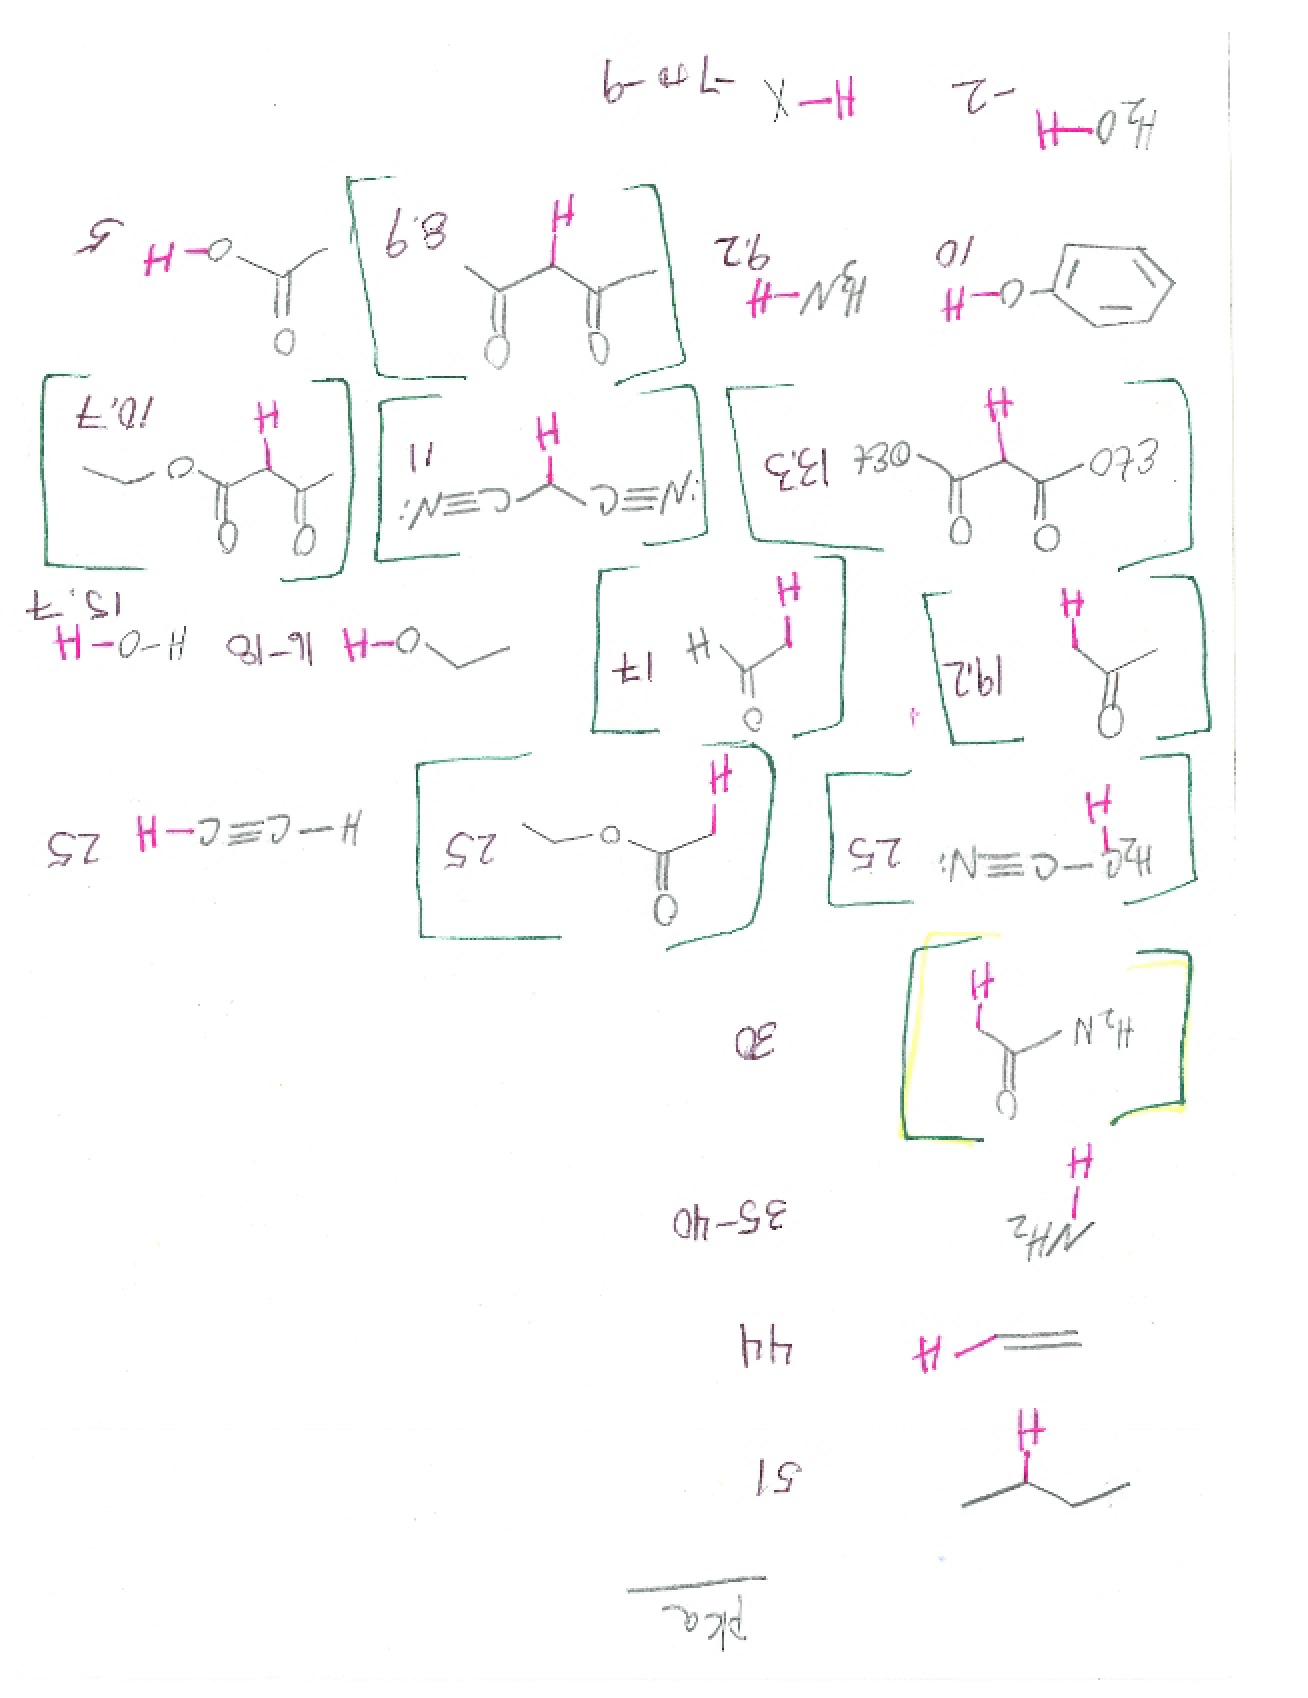 pKa
51
H
44
H
NH2 35-40
H
O
H2N 30
H
H2C–C≡N: 25
H
O
O 25
H
H–C≡C–H 25
O
19.2
H
O
H 17
H
O–H 16-18
H–O–H
15.7
O O
EtO OEt 13.3
H
:N≡C C≡N:
H 11
O O
O
H 10.7
O–H
10
H3N–H
9.2
O O
H 8.9
O
O–H 5
H2O–H
-2
H–X -7 to -9